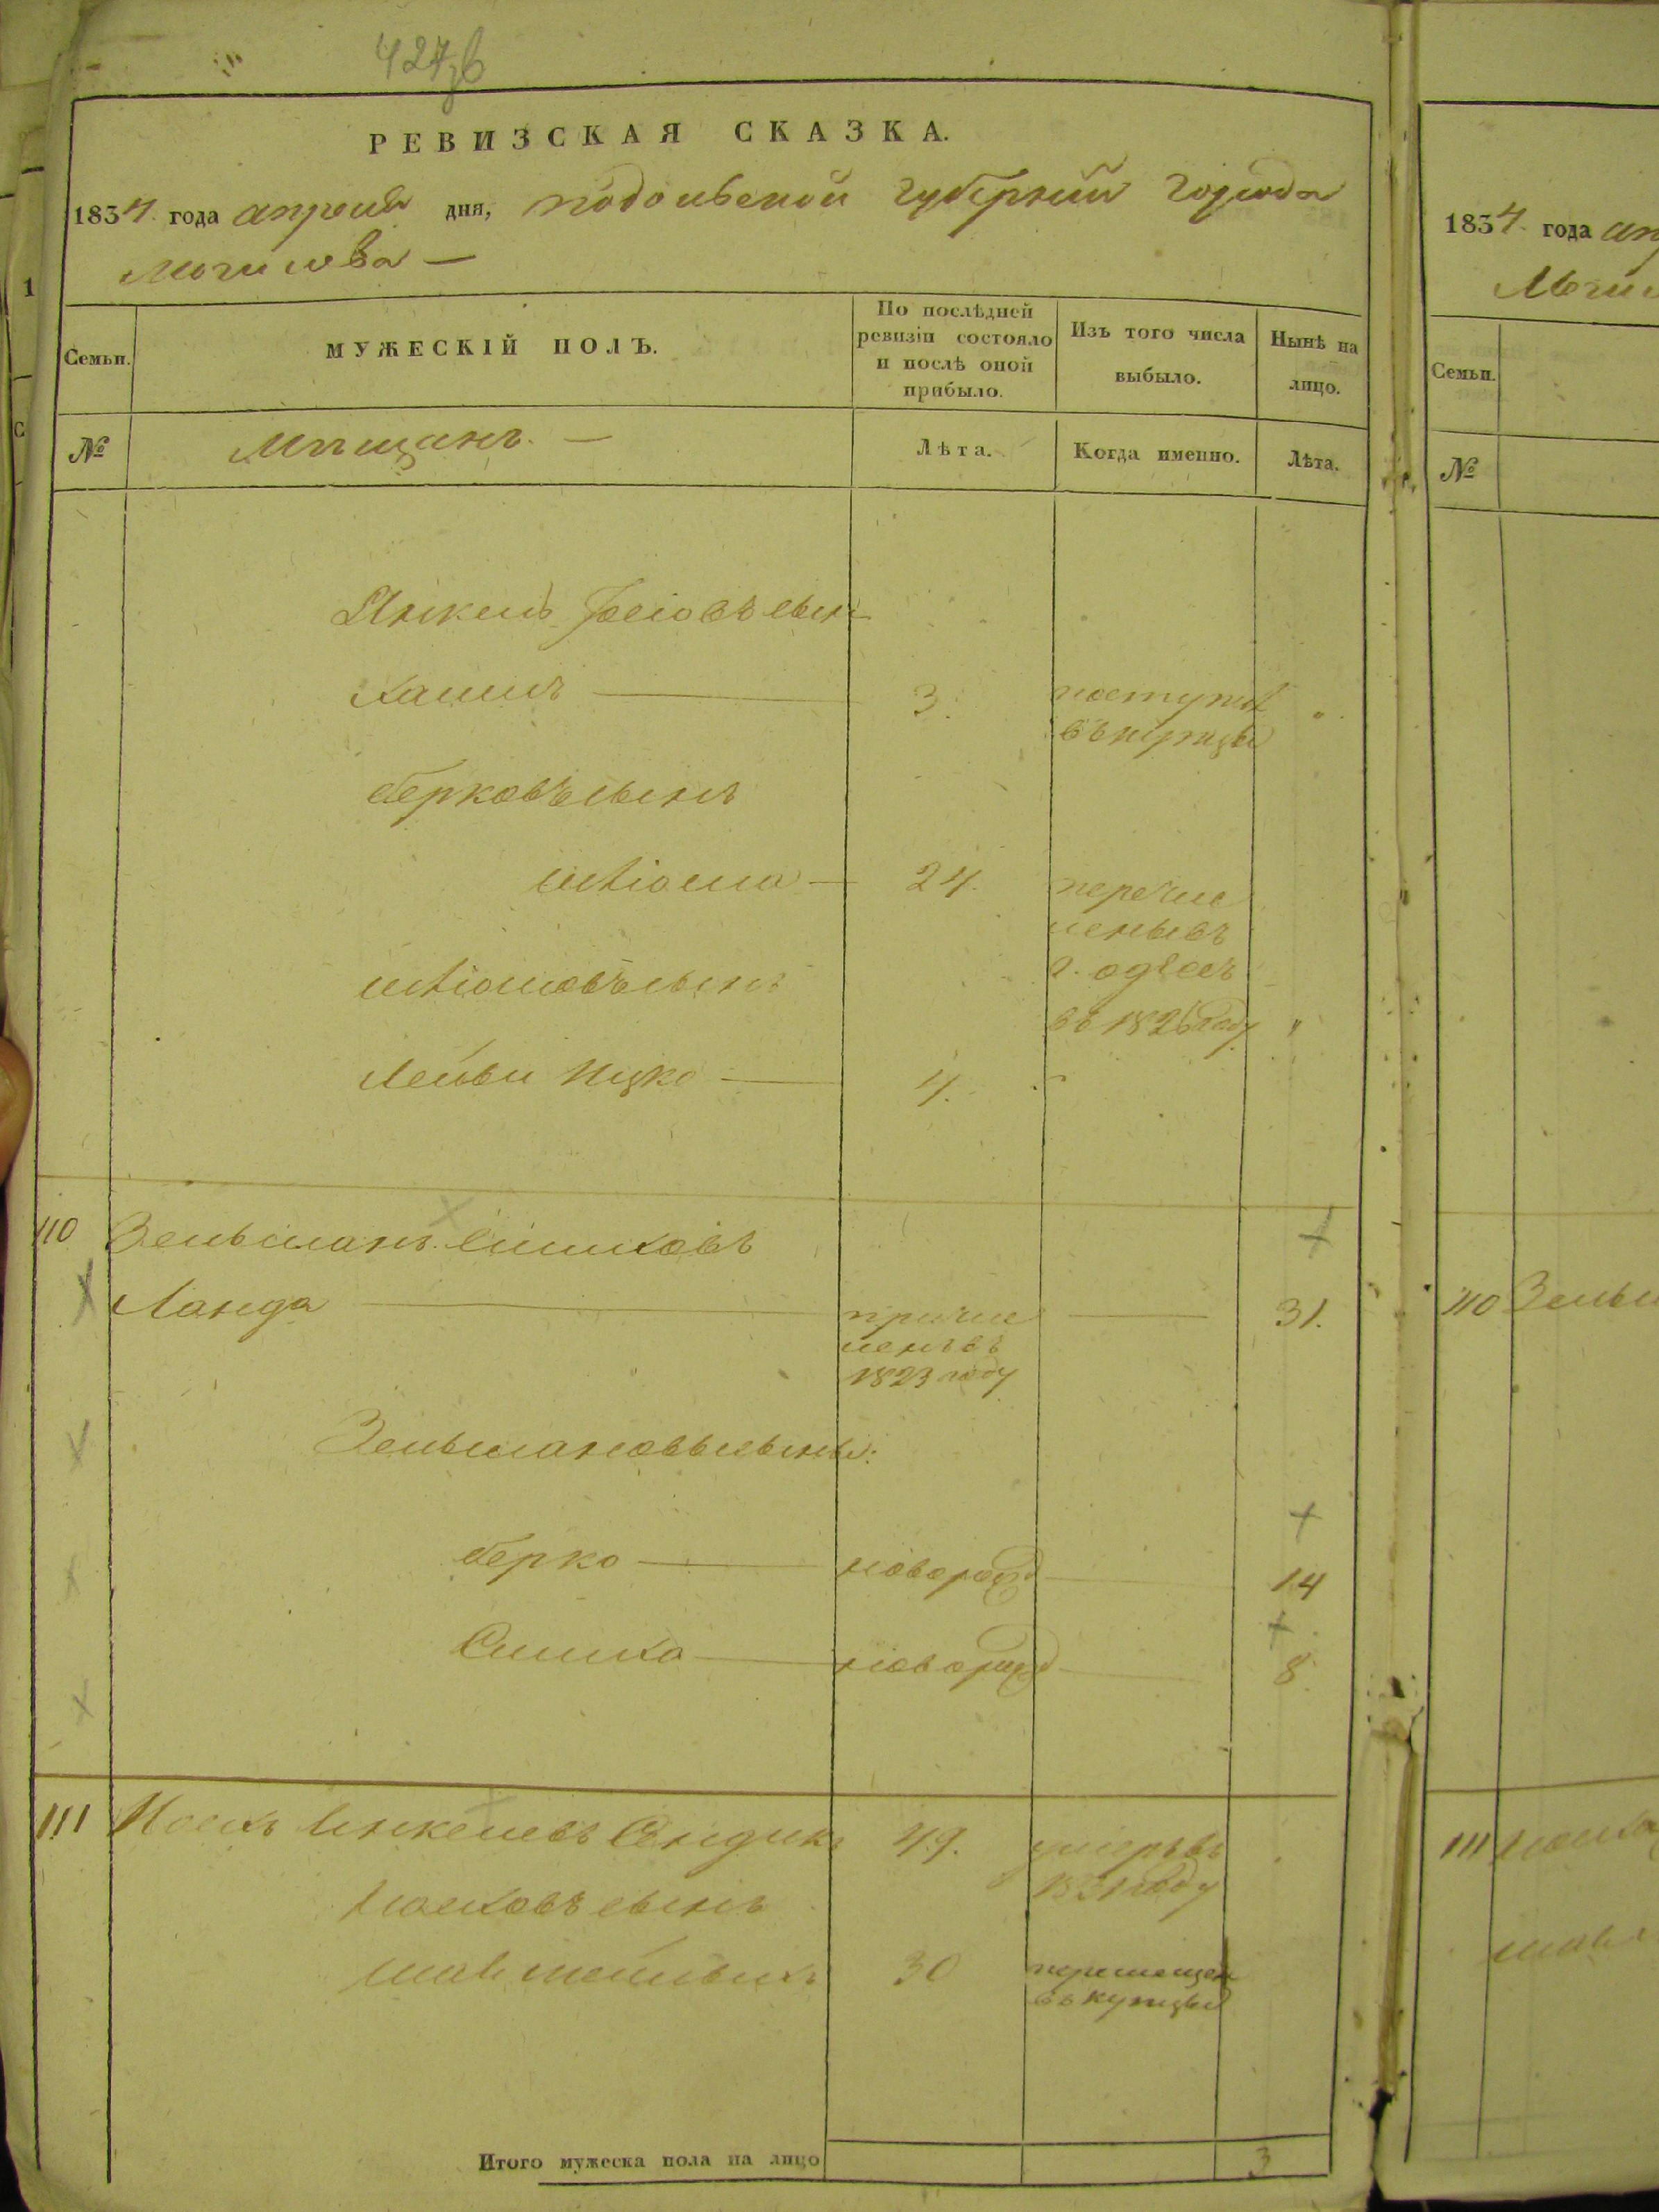 427зв
РЕВИЗСКАЯ СКАЗКА.
1834 года апреля дня, подольской губернии города
Могилева —
Семьи.
МУЖЕСКІЙ ПОЛЪ.
По послѣдней ревизіи состояло и послѣ оной прибыло.
Изъ того числа выбыло.
Нынѣ на лицо.
№
Мѣщанъ. —
Лѣта.
Когда именно.
Лѣта.
Янкель
Хаимъ — 3.
въ купцы
берковъ сынъ
24. перечис
ленъ въ
г. одессъ
въ 1826 году "
Лейбы Ицко — 4.
110 Зельманъ Симховъ
Ланда — причис — 31.
ленъ въ
1823 году
Зельмановы сыны:
берко — новорожд — 14
Симха — новорожд — 8.
111 Мосх Янкелевъ Сендик 49. умеръ въ
1831 году
Мосховъ сынъ
30 перемещен
въ купцы
Итого мужеска пола на лицо 3
1834 года ап
Могил
Семьи.
№
110 Зельм
111